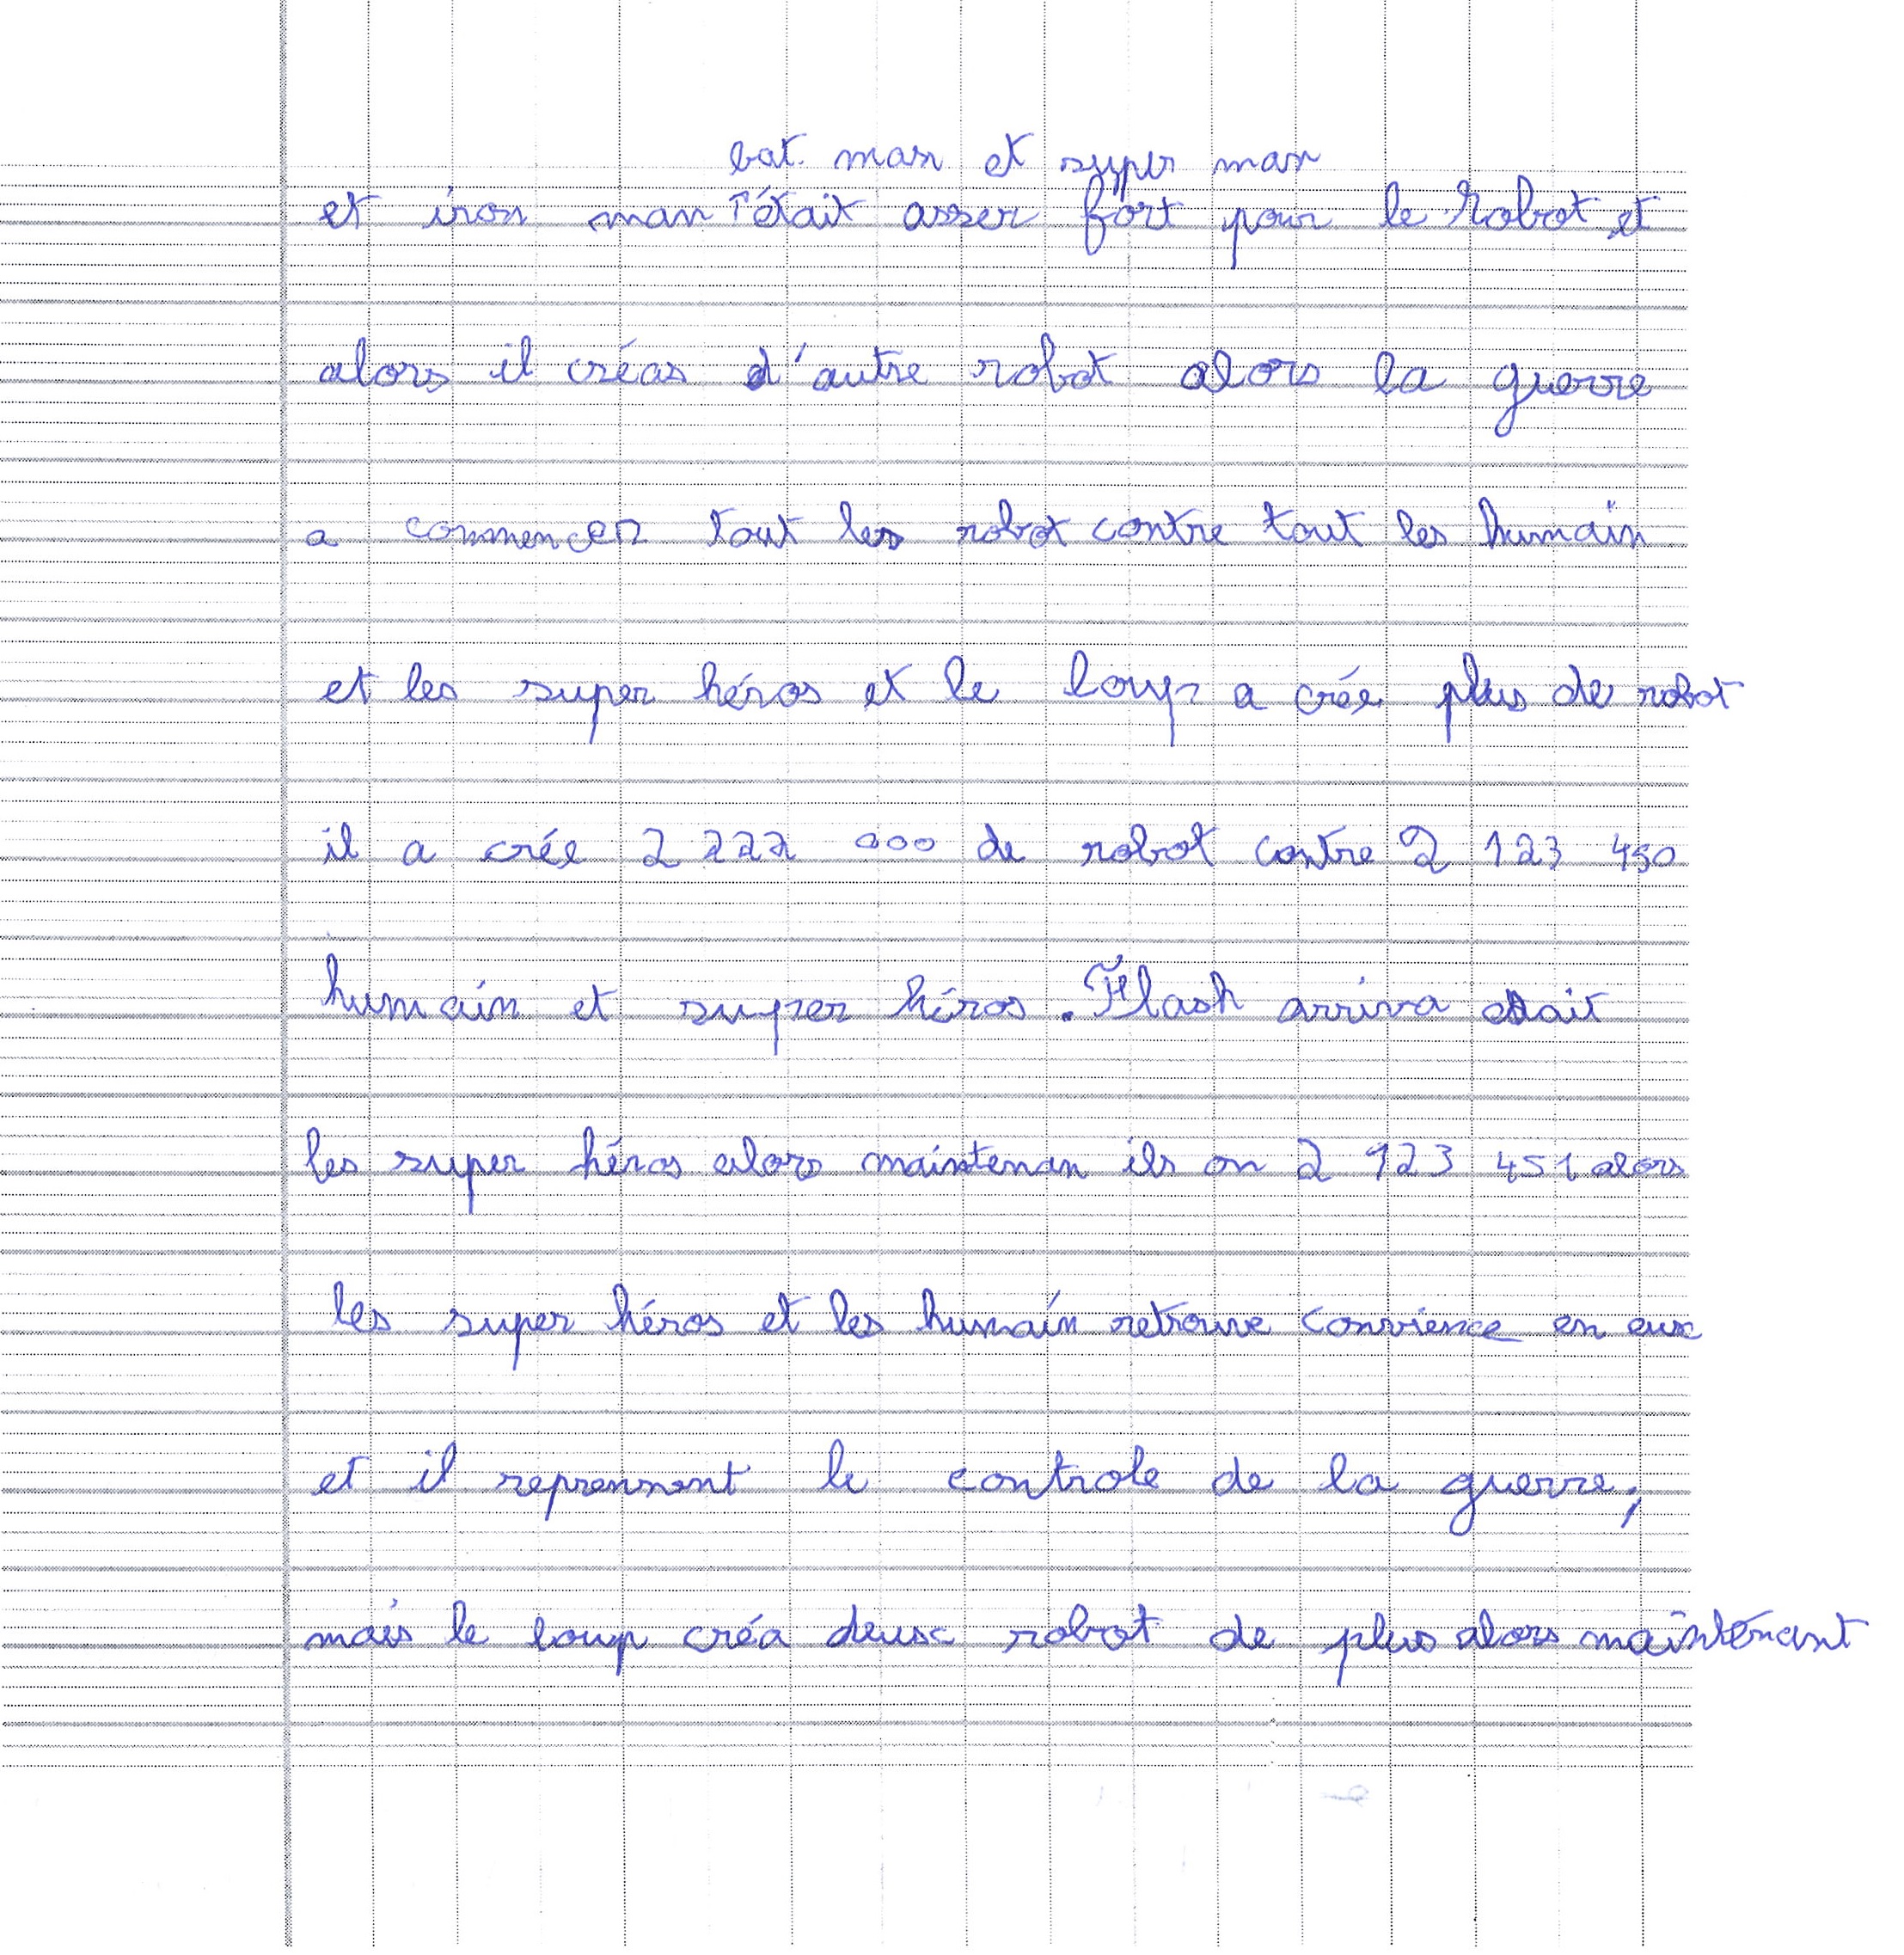 bat man et super man
et iron man était asser fort pour le robot et
alors il créas d'autre robot alors la guerre
a commencer tout les robot contre tout les humain
et les super héros et le loup a crée plus de robot
il a crée 2 222 000 de robot contre 2 123 450
humain et super héros. Flash arriva était
les super héros alors maintenan ils on 2 123 451 alors
les super héros et les humain retrouve convience en eux
et il reprennent le controle de la guerre,
mais le loup créa deux robot de plus alors maintenant